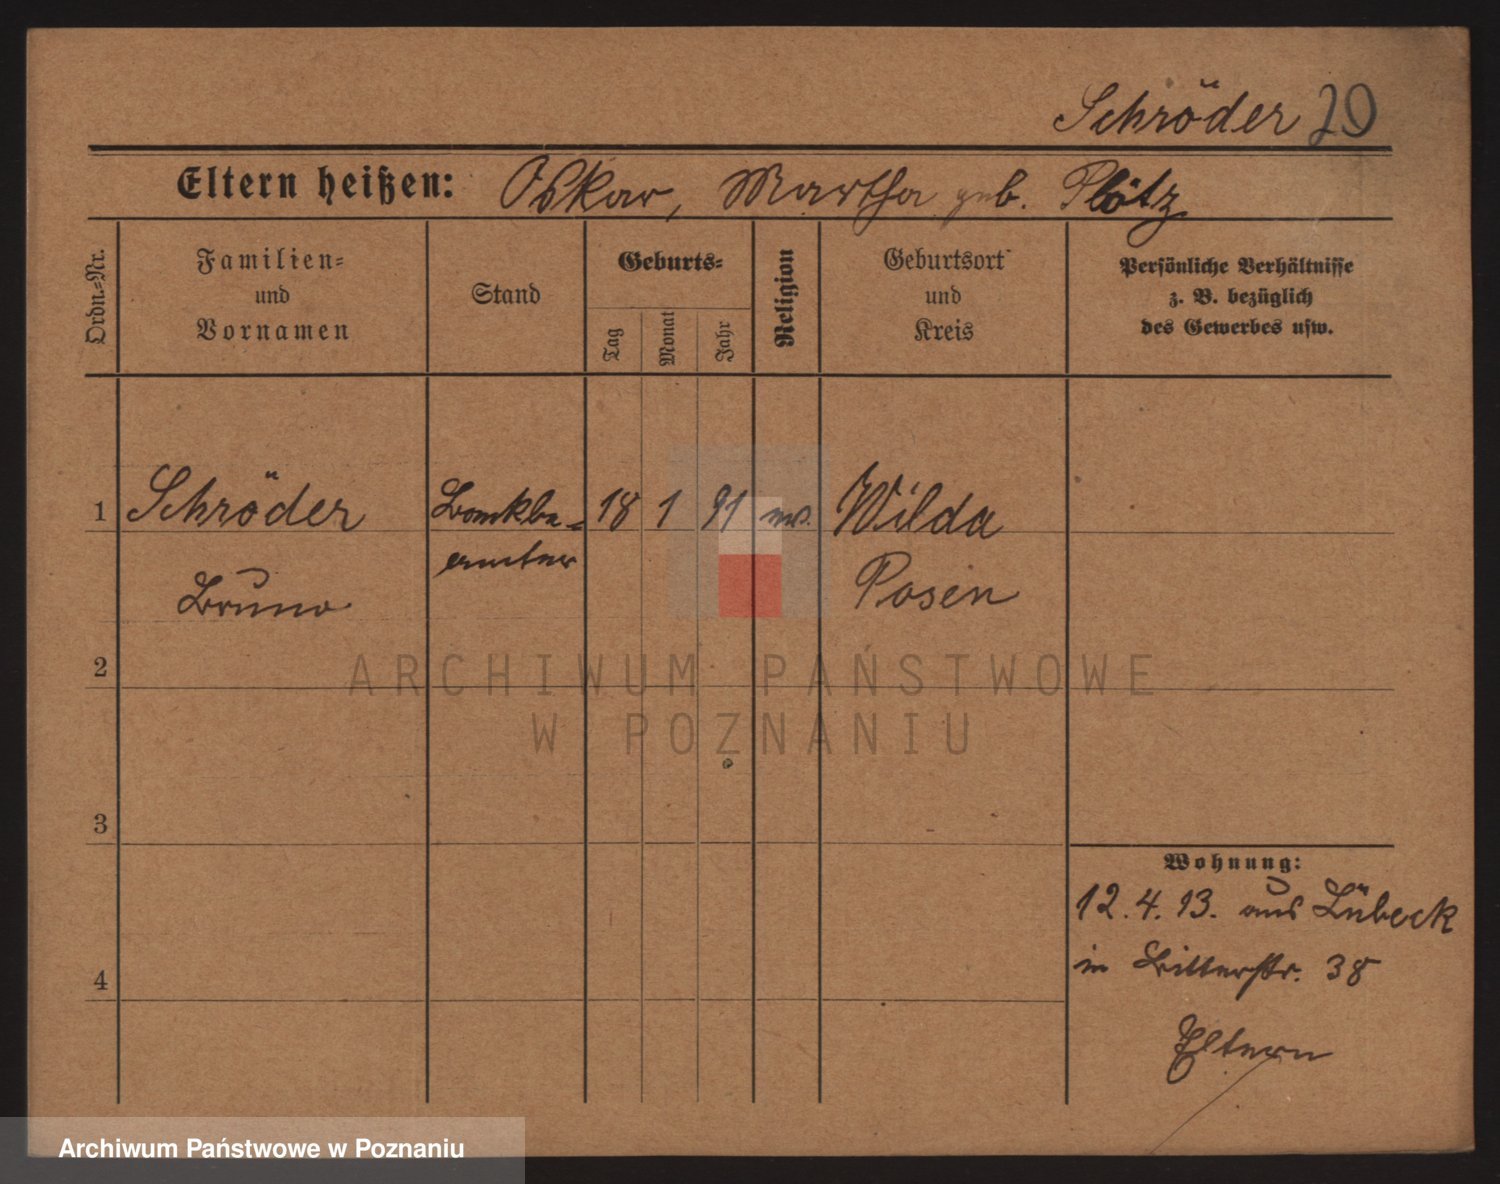 Schröder 20
Eltern heißen: Oskar, Martha geb. Plötz
Ordn.-Nr.
Familien-
und
Vornamen
Stand
Geburts-
Tag
Monat
Jahr
Religion
Geburtsort
und
Kreis
Persönliche Verhältnisse
z. B. bezüglich
des Gewerbes usw.
1 Schröder Bankbe- 18 1 91 Wilda
amter
Bruno Posen
2
ARCHIWUM PAŃSTWOWE
W POZNANIU
3
Wohnung:
12.4.13. aus Lübeck
4
in Ritterstr. 38
Eltern
Archiwum Państwowe w Poznaniu